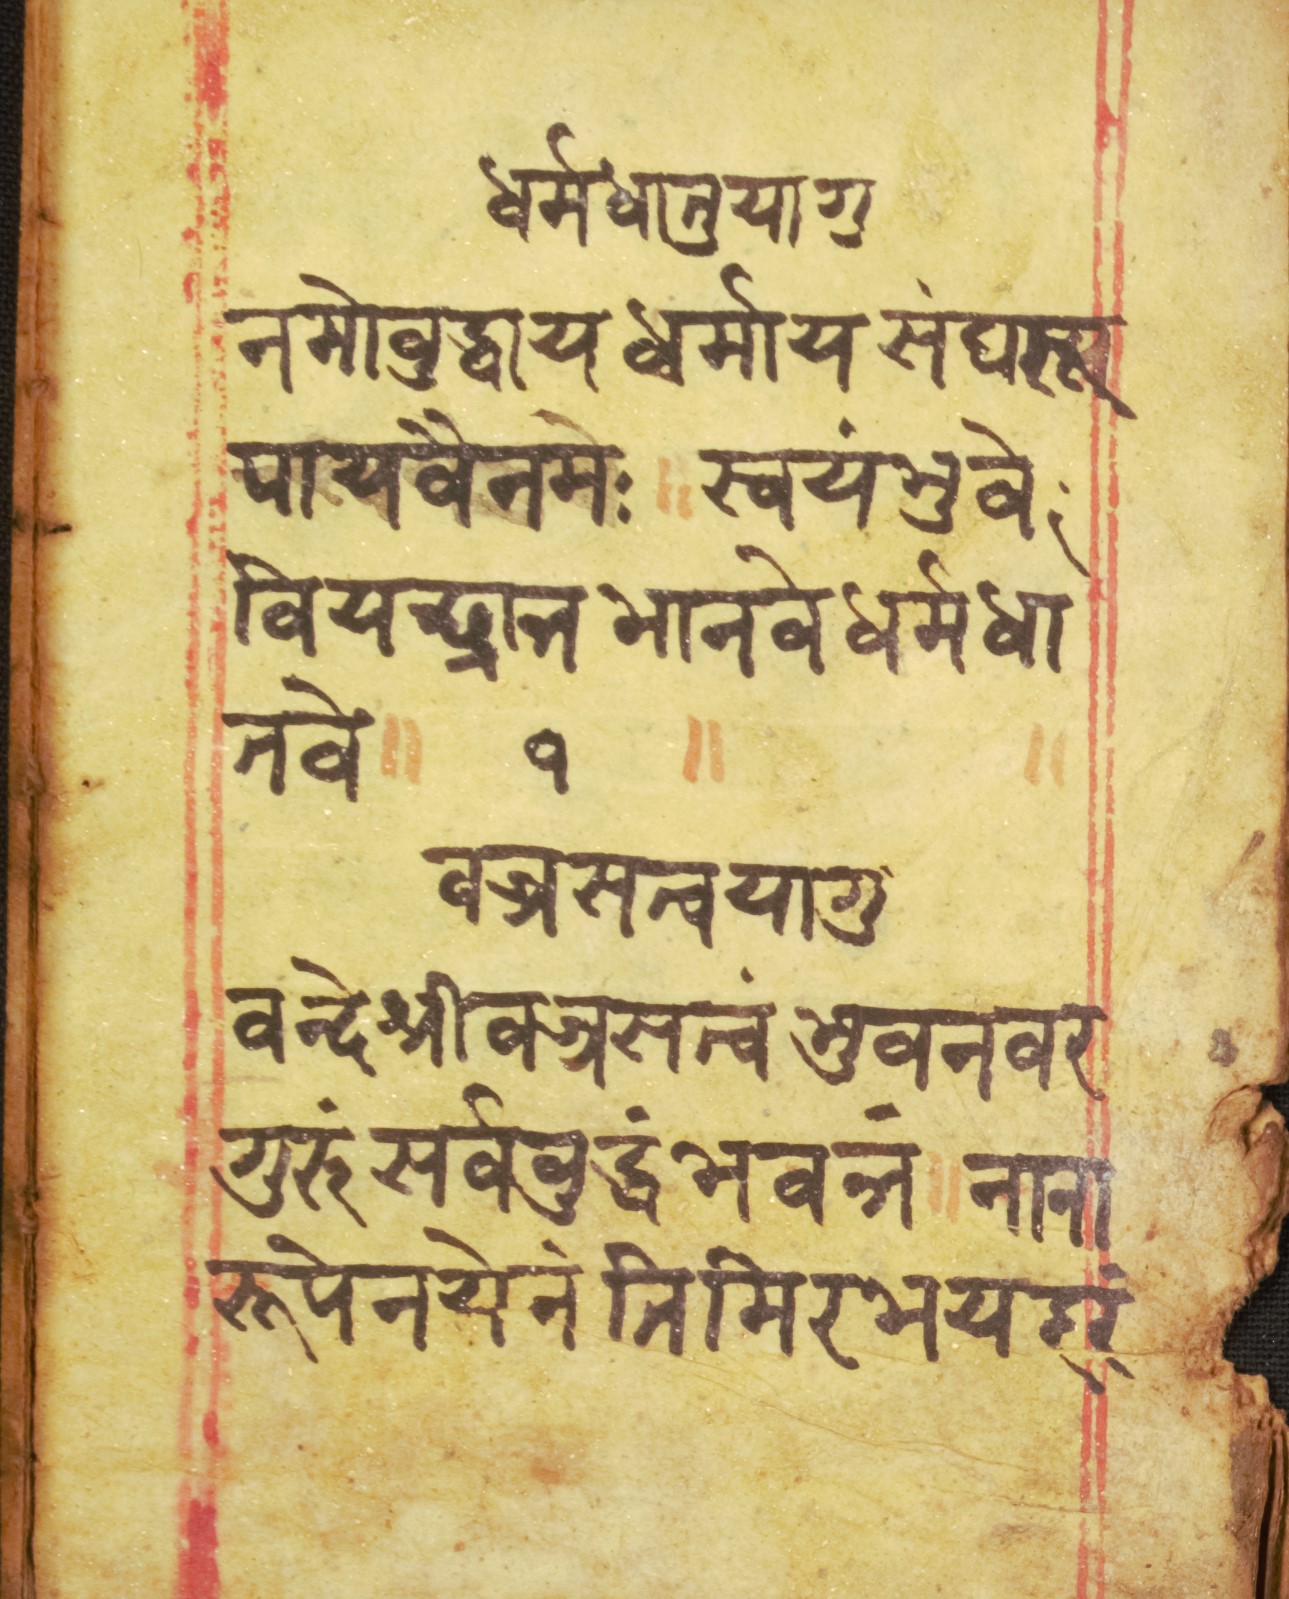 धर्मधातुयागु
नमोवुद्धाय धर्माय संघरू
पायवैनमेः ॥ स्वयंभुवे
वियच्छान्त भानवे धर्मधा
तवे ॥ १ ॥ ॥
वज्रसत्वयागु
वन्दे श्रीवज्रसत्वं भुवनवर
गुरुं सर्ववुद्धं भवन्तं ॥ नाना
रूपेनयेनं तिमिरभयहरं